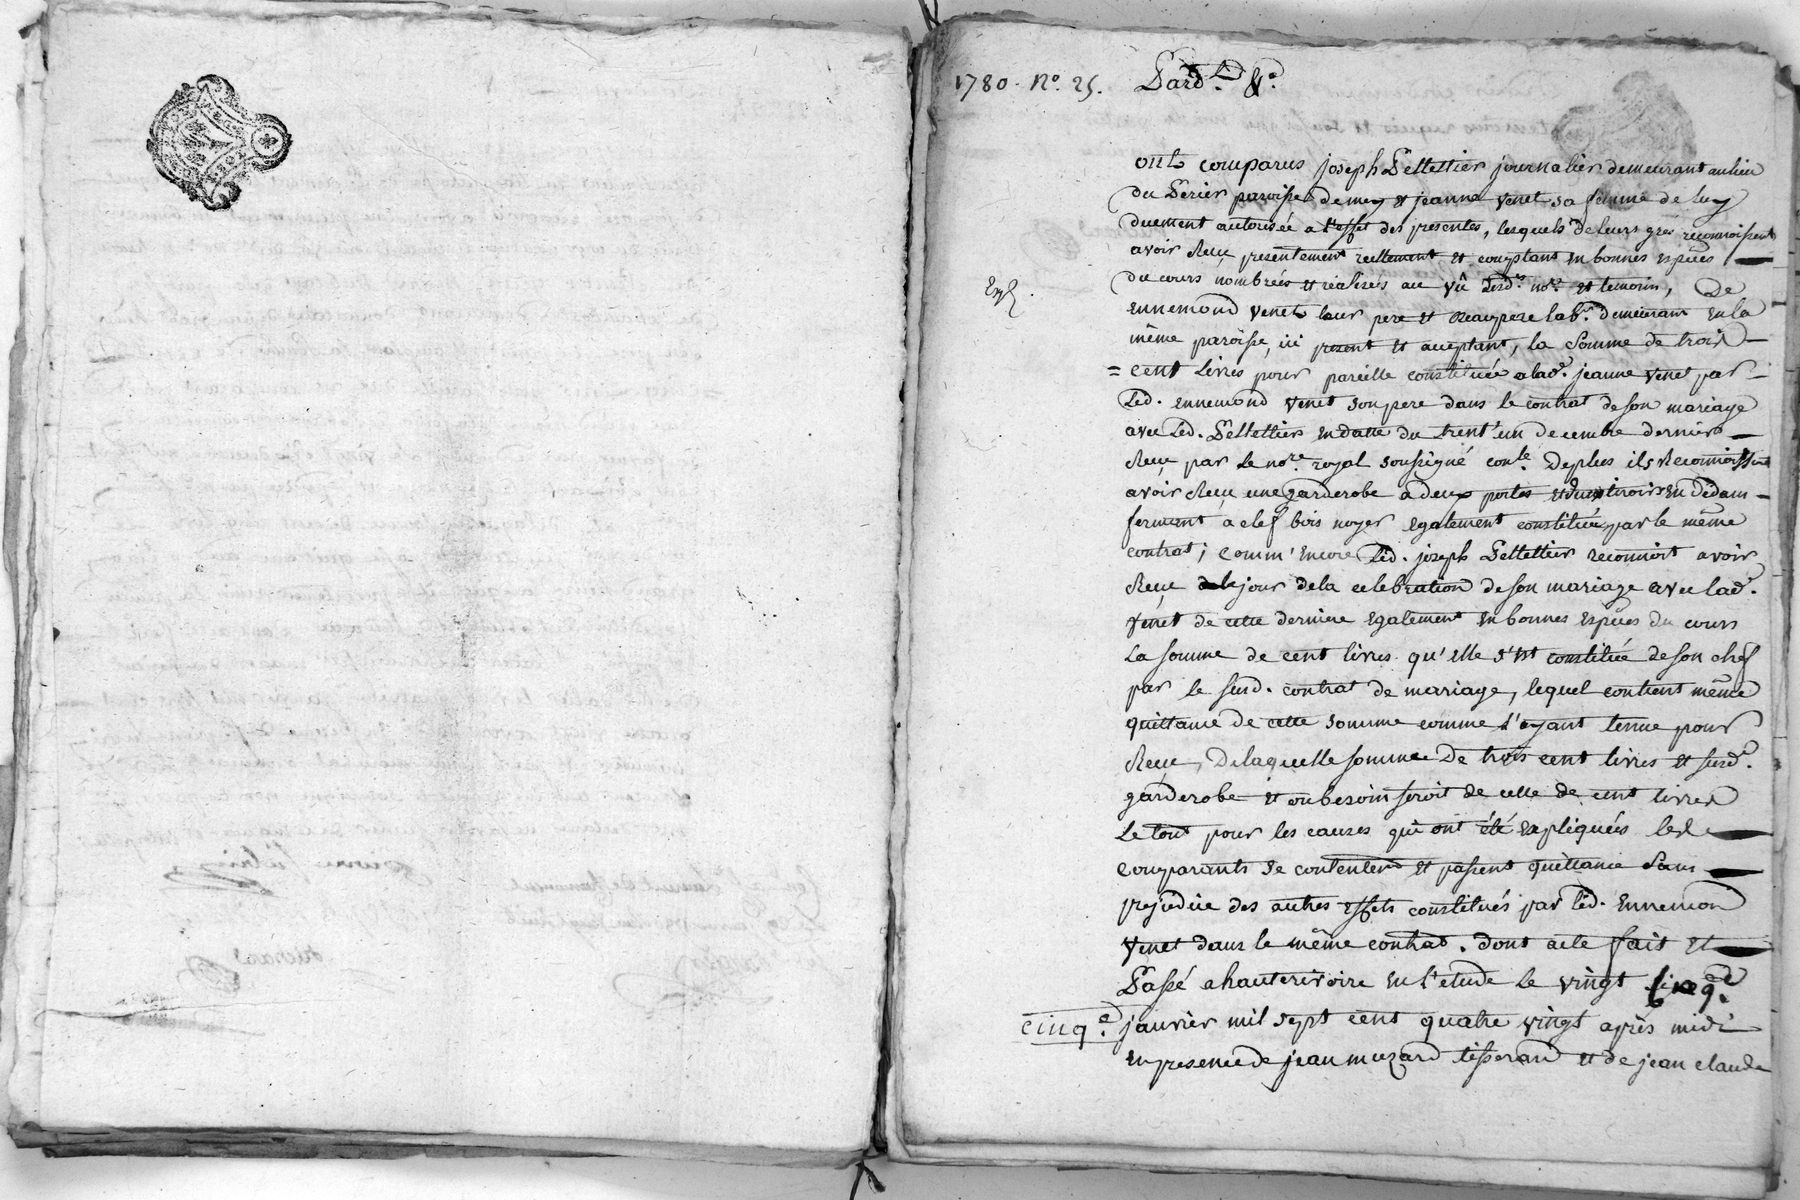 1780. N°. 25. Pard.t &.a
ont comparus joseph Pellettier journalier demeurant au lieu
du Perier paroisse de mey et jeanne venet sa femme de luy
duement autorisée a l'effet des presentes, lesquels de leurs gres reconnoissent
avoir Reçu presentement reellement et comptant en bonnes espèces
du cours nombreés et réalisés au vû desd.s no.re et temoins, De
Exp.
ennemond venet leur pere et beaupere lab.r demeurant en la
même paroisse, ici present et acceptant, la somme de trois
= cent Livres pour pareille constituée a lad.e jeanne venet par
Led. ennemond venet son pere dans le contrat de son mariage
avec Led. Pellettier en datte du trent'un decembre dernier
Reçu par le no.re royal soussigné cont.lé Deplus ils Reconnoissent
avoir Reçu une garderobe a deux portes et deux tiroirs en dedans
fermant a clef bois noyer egalement constituée par le même
contrat; comm'encore Led. joseph Pellettier reconnoit avoir
Reçu le jour de la celebration de son mariage avec lad.e
venet de cette derniere egalement en bonnes espèces du cours
La somme de cent livres qu'elle s'est constituée de son chef
par le susd. contrat de mariage, lequel contient même
quittance de cette somme comme l'ayant tenue pour
Reçue, De laquelle somme De trois cent livres et susd.e
garderobe et ou besoin seroit de celle de cent livres
Le tout pour les causes qui ont été expliqueés lesd
comparants se contentent et passent quittance sans
prejudice des autres effets constitués par led. Ennemond
Venet dans le même contrat. Dont acte fait et
Passé a hauterivoire en l'etude le vingt cinq.e
cinq.e janvier mil sept cent quatre vingt après midi
en presence de jean muzard tisserand et de jean claude